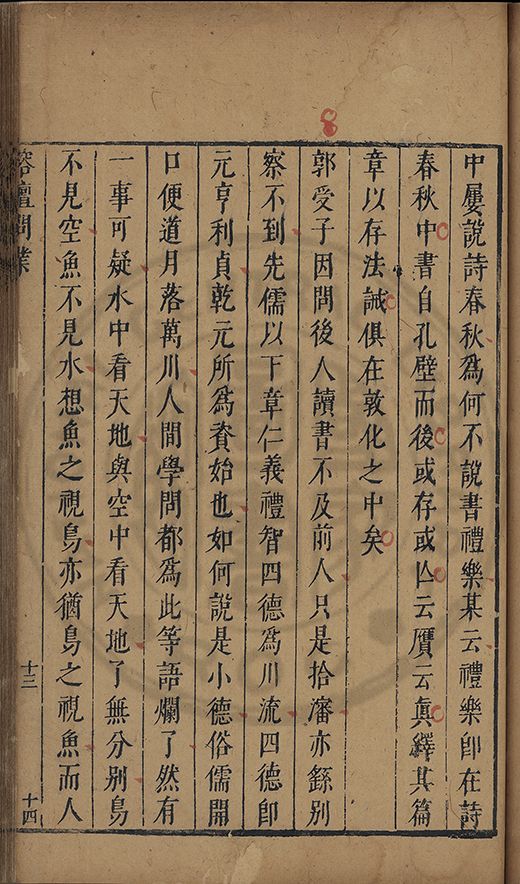 8
中屢說詩春秋為何不說書禮樂某云禮樂卽在詩
春秋中書自孔壁而後或存或亾云贋云眞繹其篇
章以存法誡俱在敦化之中矣
郭受子因問後人讀書不及前人只是拾瀋亦繇別
察不到先儒以下章仁義禮智四德為川流四德卽
元亨利貞乾元所為資始也如何說是小德俗儒開
口便道月落萬川人間學問都為此等語爛了然有
一事可疑水中看天地與空中看天地了無分別鳥
不見空魚不見水想魚之視鳥亦猶鳥之視魚而人
榕壇問業
十三
十四